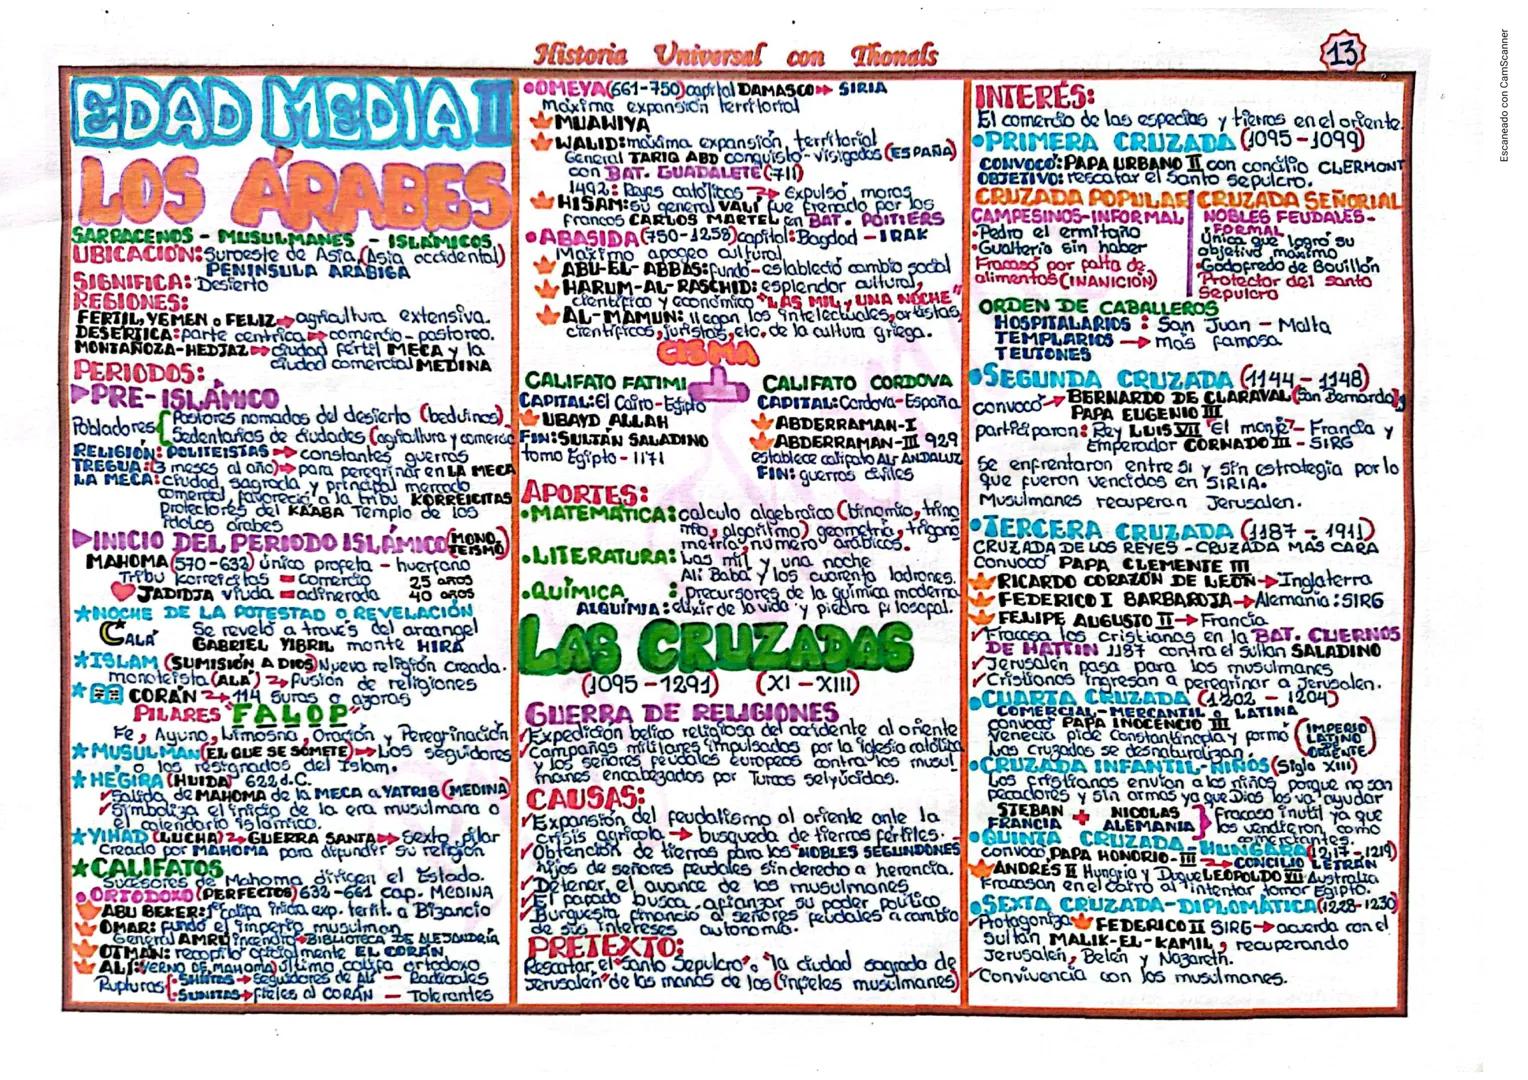 Historia Universal con Thonals
13
Escaneado con CamScanner
EDAD MEDIA II
LOS ÁRABES
SARRACENOS - MUSULMANES - ISLÁMICOS
UBICACIÓN: Suroeste de Asia (Asia occidental)
PENINSULA ARÁBIGA
SIGNIFICA: Desierto
REGIONES:
FERTIL, YEMEN o FELIZ → agricultura extensiva.
DESERTICA: parte centrica → comercio - pastoreo.
MONTAÑOZA - HEDJAZ → ciudad fértil MECA y la
ciudad comercial MEDINA
PERIODOS:
PRE - ISLÁMICO
Pobladores { Pastores nomados del desierto (beduinos).
Sedentarios de ciudades (agricultura y comercio
RELIGIÓN: POLITEISTAS → constantes guerras
TREGUA: (3 meses al año) → para peregrinar en LA MECA
LA MECA: ciudad, sagrada y principal mercado
comercial, favoreció a la tribu KORREICITAS
protectores del KAABA Templo de los
ídolos árabes
INICIO DEL PERIODO ISLÁMICO (MONOTEISMO)
MAHOMA (570-632) único profeta - huerfano
Tribu korreicitas = comercio 25 años
JADIDJA viuda = adinerada 40 años
NOCHE DE LA POTESTAD O REVELACIÓN
ALÁ Se reveló a través del arcangel
GABRIEL YIBRIL monte HIRA
ISLAM (SUMISIÓN A DIOS) Nueva religión creada.
monoteista (ALÁ) → fusión de religiones
CORÁN → 114 suras o azoras
PILARES "FALOP"
Fe, Ayuno, Limosna, Oración y Peregrinación
MUSULMAN (EL QUE SE SOMETE) → Los seguidores
o los resignados del Islam.
HÉGIRA (HUIDA) 622 d.C.
Salida de MAHOMA de la MECA a YATRIB (MEDINA)
Simboliza el inicio de la era musulmana o
el calendario islámico.
YIHAD (LUCHA) → GUERRA SANTA → Sexto pilar
creado por MAHOMA para difundir su religión
CALIFATOS
Sucesores de Mahoma dirigen el Estado.
ORTODOXO (PERFECTOS) 632-661 cap. MEDINA
ABU BEKER: 1° califa inicia exp. territ. a Bizancio
OMAR: fundó el imperio musulman
General AMRU incendio → BIBLIOTECA DE ALEJANDRÍA
OTMAN: recopiló oficialmente EL CORÁN
ALI: (YERNO DE MAHOMA) último califa ortodoxo
Rupturas { SHIITAS → seguidores de Ali - Radicales
SUNITAS → fieles al CORÁN - Tolerantes
OMEYA (661-750) capital DAMASCO → SIRIA
Máxima expansión territorial
MUAWIYA
WALID: máxima expansión territorial
General TARIQ ABD conquisto - visigodos (ESPAÑA)
con BAT. GUADALETE (711)
1492: Reyes católicos → Expulsó moros
HISAM: su general VALÍ fue frenado por los
francos CARLOS MARTEL en BAT. POITIERS
ABASIDA (750-1258) capital: Bagdad - IRAK
Máximo apogeo cultural
ABU-EL-ABBAS: fundó - estableció cambio social
HARUM-AL-RASCHID: esplendor cultural,
científico y económico "LAS MIL y UNA NOCHE"
AL-MAMUN: llegan los intelectuales, artistas,
científicos, juristas, etc. de la cultura griega.
CISMA
CALIFATO FATIMI
CAPITAL: El Cairo - Egipto
UBAYD ALLAH
FIN: SULTÁN SALADINO
tomo Egipto - 1171
CALIFATO CORDOVA
CAPITAL: Cordova - España
ABDERRAMAN-I
ABDERRAMAN-III 929
establece califato AL ANDALUZ
FIN: guerras civiles
APORTES:
MATEMÁTICA: calculo algebraico (binomio, trino
mio, algoritmo) geometría, trigono
metría, número arábicos.
LITERATURA: Las mil y una noche
Alí Babá y los cuarenta ladrones.
QUÍMICA : precursores de la química moderna
ALQUÍMIA: elixir de la vida y piedra filosofal.
LAS CRUZADAS
(1095 - 1291) (XI - XIII)
GUERRA DE RELIGIONES
Expedición belico religiosa del occidente al oriente
Campañas militares impulsados por la iglesia católica
y los señores feudales europeos contra los musul
manes encabezados por Turcos selyúcidas.
CAUSAS:
Expansión del feudalismo al oriente ante la
crisis agrícola → busqueda de tierras fértiles.
Obtención de tierras para los "NOBLES SEGUNDONES
hijos de señores feudales sin derecho a herencia.
Detener el avance de los musulmanes
El papado busca afianzar su poder político.
Burguesía financió al señores feudales a cambio
de sus intereses autonomía.
PRETEXTO:
Rescatar el "Santo Sepulcro" o "la ciudad sagrada de
Jerusalen" de las manos de los (infieles musulmanes)
INTERÉS:
El comercio de las especias y tierras en el oriente.
PRIMERA CRUZADA (1095 - 1099)
CONVOCÓ: PAPA URBANO II con concilio CLERMONT
OBJETIVO: rescatar el Santo Sepulcro.
CRUZADA POPULAR
CAMPESINOS-INFORMAL
Pedro el ermitaño
Gualterio sin haber
Fracasó por falta de
alimentos (INANICIÓN)
CRUZADA SEÑORIAL
NOBLES FEUDALES -
FORMAL
Única que logró su
objetivo máximo
Godofredo de Bouillón
Protector del santo
Sepulcro
ORDEN DE CABALLEROS
HOSPITALARIOS : San Juan - Malta
TEMPLARIOS → mas famosa
TEUTONES
SEGUNDA CRUZADA (1144 - 1148)
convocó → BERNARDO DE CLARAVAL (San Bernardo)
PAPA EUGENIO III
participaron: Rey LUIS VII "El monje" - Francia y
Emperador CORNADO III - SIRG
Se enfrentaron entre si y sin estrategia por lo
que fueron vencidos en SIRIA.
Musulmanes recuperan Jerusalen.
TERCERA CRUZADA (1187 - 1911)
CRUZADA DE LOS REYES - CRUZADA MÁS CARA
Convocó PAPA CLEMENTE III
RICARDO CORAZÓN DE LEÓN → Inglaterra
FEDERICO I BARBAROJA → Alemania: SIRG
FELIPE AUGUSTO II → Francia
Fracasa los cristianos en la BAT. CUERNOS
DE HATTIN 1187 contra el sultan SALADINO
Jerusalén pasa para los musulmanes
Cristianos ingresan a peregrinar a Jerusalen.
CUARTA CRUZADA (1202 - 1204)
COMERCIAL - MERCANTIL o LATINA
convocó PAPA INOCENCIO III
Venecia pide Constantinopla y formó (IMPERIO LATINO DE ORIENTE)
Las cruzadas se desnaturalizan.
CRUZADA INFANTIL - NIÑOS (Siglo XIII)
Los cristianos envían a los niños porque no son
pecadores y sin armas ya que Dios los va ayudar
STEBAN FRANCIA + NICOLAS ALEMANIA } Fracasó inutil ya que
los vendieron como
QUINTA CRUZADA - HUNGARA (1217 - 1219)
convocó PAPA HONORIO - III → CONCILIO LETRAN
ANDRÉS II Hungria y Duque LEOPOLDO VII Australia
Fracasan en el cairo al intentar tomar Egipto.
SEXTA CRUZADA - DIPLOMÁTICA (1228 - 1230)
Protagoniza FEDERICO II SIRG → acuerda con el
Sultan MALIK-EL-KAMIL, recuperando
Jerusalén, Belén y Nazaretn.
Convivencia con los musulmanes.